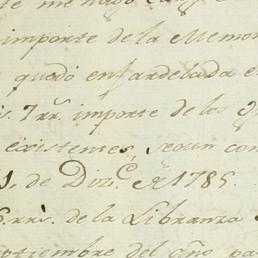 importe de la Memo
quedó enfardelada e
7 rr.s importe de los
existentes, segun con
1. de Diz.e de 1785.
6. rr.s de de la Libranza
eptiembre del año pa